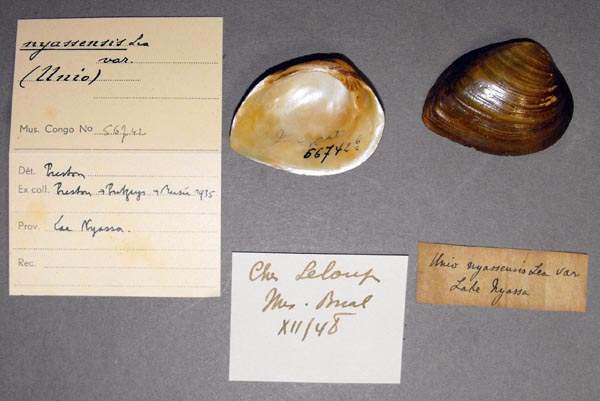 nyassensis Lea
var.
(Unio)
Mus. Congo No 56742
Dét. Preston
Ex coll. Preston → Putzeys → Musée 1935
Prov. Lac Nyassa.
Rec.
56742
Chez Leloup
Mus. Brux.
XII/48
Unio nyassensis Lea var
Lake Nyassa